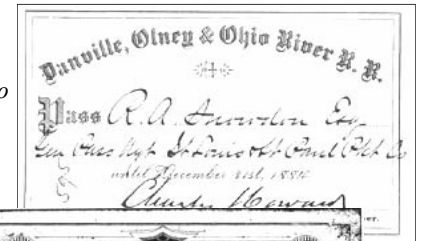 Danville, Olney & Ohio River R. R.
Pass R. A. Snowdon Esq
Gen Pass Agt St Louis & St Paul Pkt Co
until December 31st, 1884
Charles Howard
o